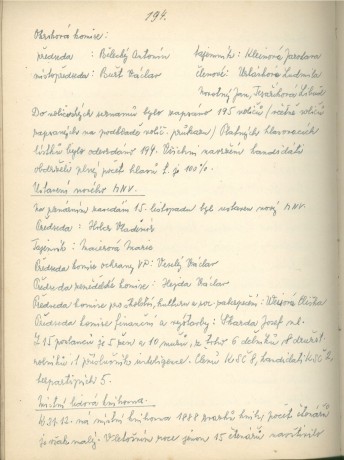 194.
Okrsková komice:
předseda : Bělecký Antonín tajemník: Kleinová Jaroslava
místopředseda: Bušt Václav členové: Ludmila
Novotný Jan,
Do voličských seznamů bylo zapsáno 195 voličů /včetně voličů
zapsaných na podkladě volič. průkazu/ Platných hlasovacích
lístků bylo odevzdáno 194. Všichni navržení kandidáti
obdrželi plný počet hlasů t.j. 100%.
Ustavení nového MNV.
Na plenárním zasedání 15. listopadu byl ustaven nový MNV.
Předseda : Vladimír
Tajemník : Maierová Marie
Předseda komice ochrany VP: Veselý Václav
Předseda zemědělské komice: Hejda Václav
Předseda komice pro školství, kulturu a soc. zabezpečení: Eliška
Předseda komice finanční a výstavby: Josef ml.
Z 15 poslanců je 5 žen a 10 mužů, z toho 6 dělníků, 8 družst
1 příslušník inteligence. Členů KSČ 8, kandidáti KSČ 2,
bezpartijních 5.
Místní lidová knihovna.
K 31.12. má místní knihovna 1888 svazků knih, počet čtenářů
je však malý. V letošním roce jenom 15 čtenářů navštívilo